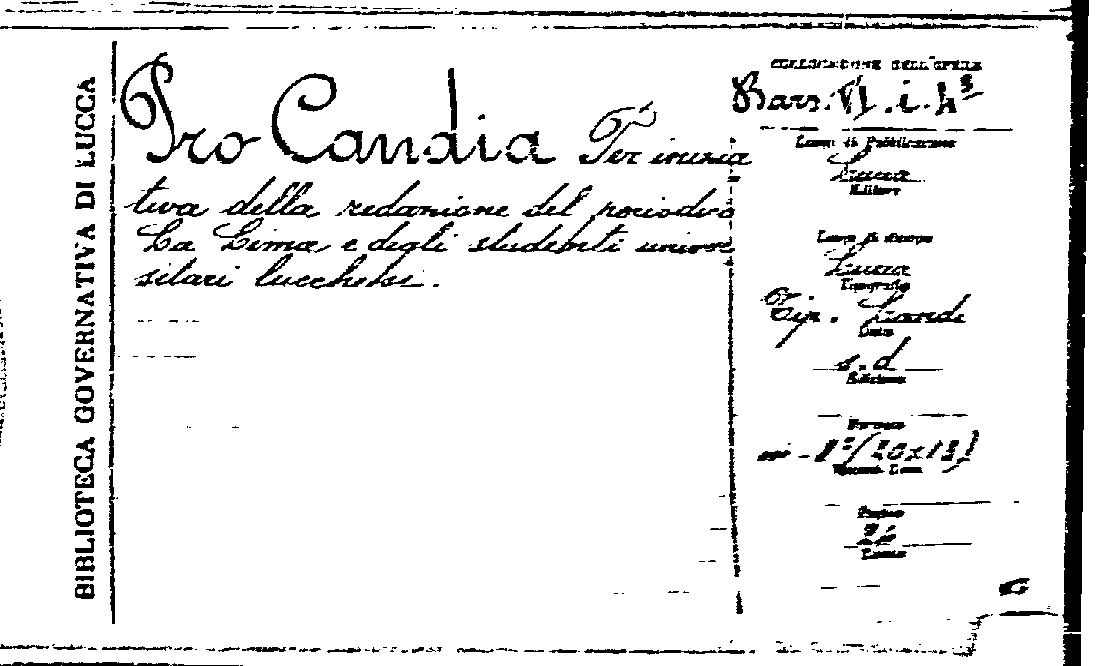 BIBLIOTECA GOVERNATIVA DI LUCCA
Pro Candia Per inizia
tiva della redazione del periodico
La Lima e degli studenti univer
sitari lucchesi.
COLLOCAZIONE DELL'OPERA
Bars. VI. i. 4³
Luogo di Pubblicazione
Lucca
Editore
Luogo di stampa
Lucca
Tipografia
Tip. Landi
Data
s.d
Edizione
Formato
in-8º (20x13)
Pagine